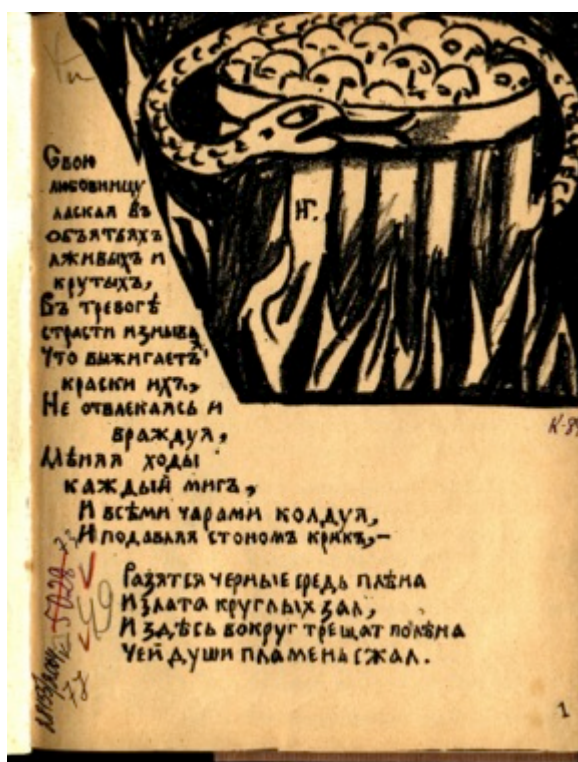 Свою
любовницу
лаская въ
объятьяхъ
лживыхъ и
крутыхъ,
Въ тревогѣ
страсти изныва
я
Что выжигаетъ
краски ихъ,
Не отвлекаясь и
враждуя,
Мѣняя ходы
каждый мигъ,
И всѣми чарами колдуя,
И подавляя стономъ крикъ,—
Разятся черные средь плѣна
И злата круглых зал,
И здѣсь вокруг трещат полѣна
Чей души пламень сжал.
НГ.
К-89
1